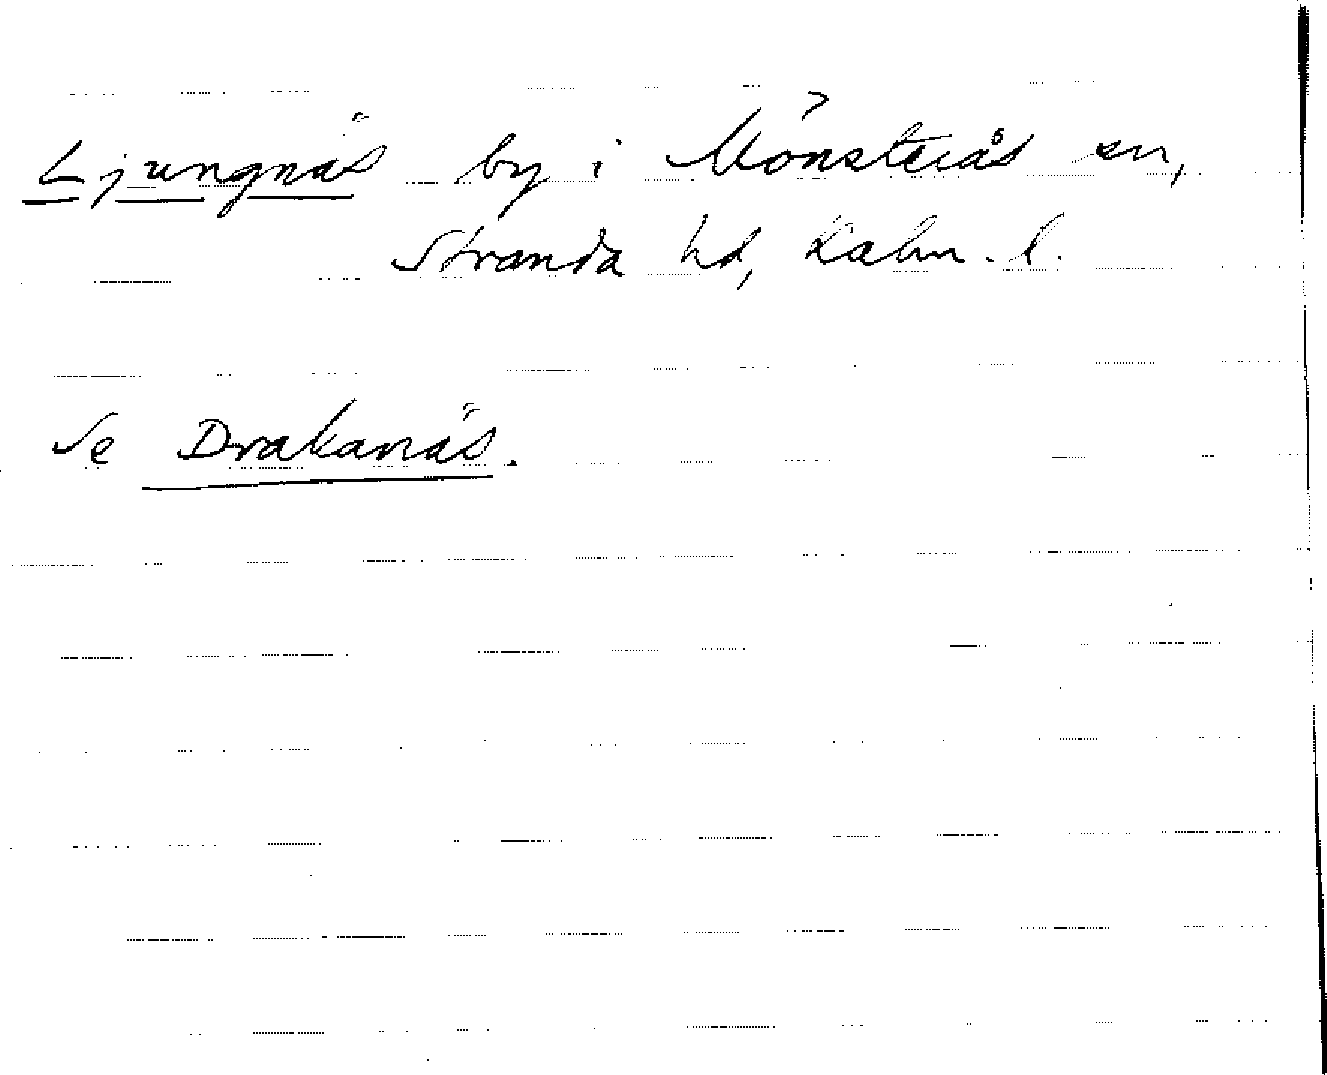 Ljungnäs by i Mönsterås sn,
Stranda hd, Kalm. l.
Se Drakanäs.